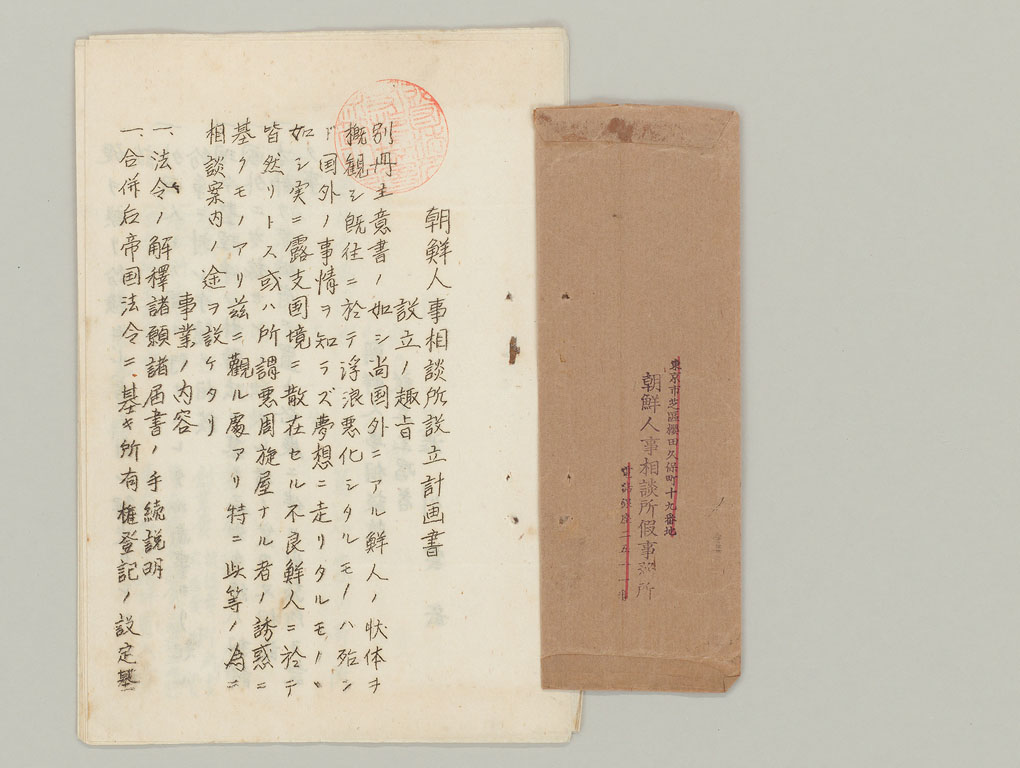 朝鮮人事相談所設立計画書
設立ノ趣旨
別冊主意書ノ如シ尚国外ニアル鮮人ノ状体ヲ
概観シ既往ニ於テ浮浪悪化シタルモノハ殆ン
ド国外ノ事情ヲ知ラズ夢想ニ走リタルモノヽ
如シ実ニ露支国境ニ散在セル不良鮮人ニ於テ
皆然リトス或ハ所謂悪周旋屋ナル者ノ誘惑ニ
基クモノアリ茲ニ觀ル處アリ特ニ此等ノ為ニ
相談案内ノ途ヲ設ケタリ
事業ノ内容
一、法令ノ解釋諸願諸届書ノ手続説明
一、合併后帝国法令ニ基キ所有権登記ノ設定基
東京市芝區櫻田久保町十九番地
朝鮮人事相談所假事務所
電話銀座二五一一番